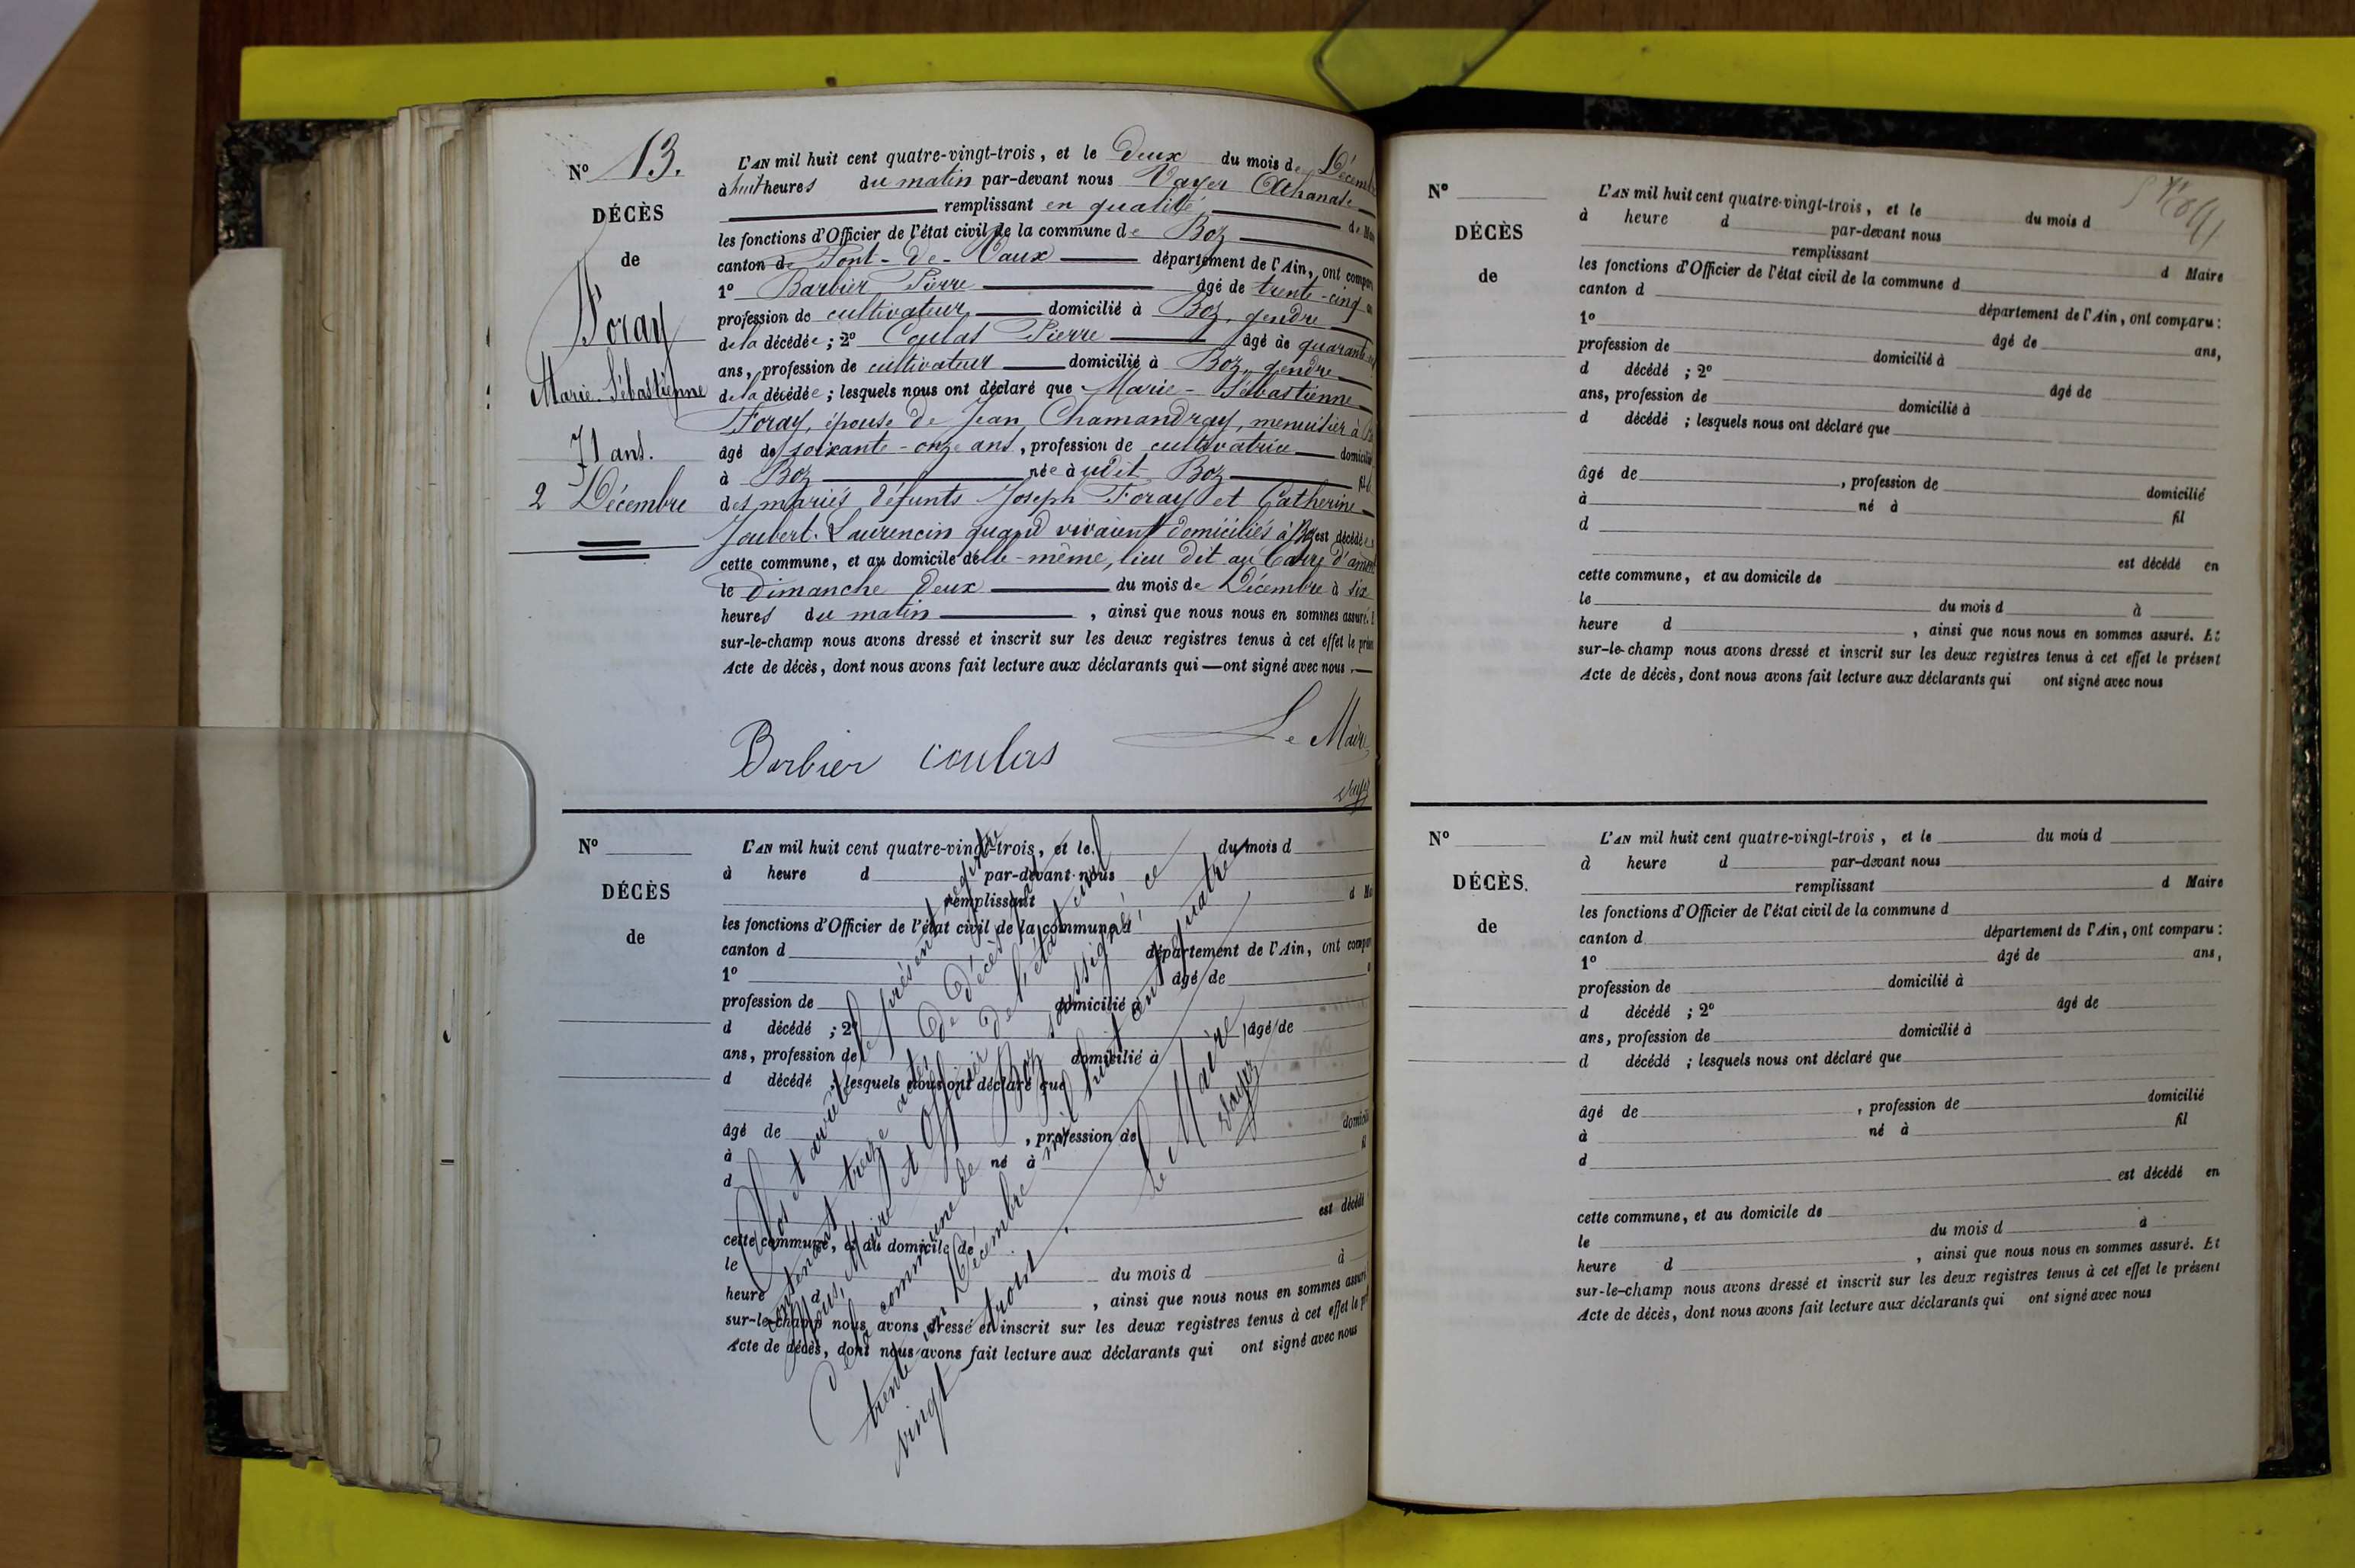 N° 13.
DÉCÈS
de
Foray
Marie-Sébastienne
71 ans.
2 Décembre
L'AN mil huit cent quatre-vingt-trois, et le Deux du mois de Décem
à huit heures du matin par-devant nous Vayer Athanase
remplissant en qualité de
les fonctions d'Officier de l'état civil de la commune de Boz
canton de Pont-de-Vaux département de l'Ain, ont compa
1° Barbier Pierre âgé de trente-cinq
profession de cultivateur domicilié à Boz, gendre
de la décédée; 2° Coulas Pierre âgé de quarante
ans, profession de cultivateur domicilié à Boz, gendre
de la décédée; lesquels nous ont déclaré que Marie-Sébastienne
Foray, épouse de Jean Chamandray, menuisier à
âgé de soixante-onze ans, profession de cultivatrice domicilié
à Boz née audit Boz
des mariés défunts Joseph Foray et Catherine
Joubert-Laurencin quand vivaient domiciliés à Boz est décédée
cette commune, et au domicile d'elle-même, lieu dit au
le Dimanche deux du mois de Décembre à six
heures du matin, ainsi que nous nous en sommes assuré.
sur-le-champ nous avons dressé et inscrit sur les deux registres tenus à cet effet le
Acte de décès, dont nous avons fait lecture aux déclarants qui ont signé avec nous.
Le Maire
Barbier Coulas
N°
DÉCÈS
de
L'AN mil huit cent quatre-vingt-trois, et le du mois d
à heure d par-devant nous
remplissant d
les fonctions d'Officier de l'état civil de la commune d
canton d département de l'Ain, ont comp
1° âgé de
profession de domicilié à
d décédé; 2° âgé de
ans, profession de domicilié à
d décédé; lesquels nous ont déclaré que
âgé de, profession de domicili
à né à
d
est décédé
cette commune, et au domicile de
le du mois d à
heure d, ainsi que nous nous en sommes assuré
sur-le-champ nous avons dressé et inscrit sur les deux registres tenus à cet effet le
Acte de décès, dont nous avons fait lecture aux déclarants qui ont signé avec nous
Clos et arrêté le présent registre
contenant treize actes de Décès par
Nous, Maire et Officier de l'état civil
de la commune de Boz soussigné, ce
trente un Décembre mil huit cent quatre
vingt-trois.
Le Maire
Vayer
N°
DÉCÈS
de
L'AN mil huit cent quatre-vingt-trois, et le du mois d
à heure d par-devant nous
remplissant d Maire
les fonctions d'Officier de l'état civil de la commune d
canton d département de l'Ain, ont comparu:
1° âgé de ans,
profession de domicilié à
d décédé; 2° âgé de
ans, profession de domicilié à
d décédé; lesquels nous ont déclaré que
âgé de, profession de domicilié
à né à fil
d
est décédé en
cette commune, et au domicile de
le du mois d à
heure d, ainsi que nous nous en sommes assuré. Et
sur-le-champ nous avons dressé et inscrit sur les deux registres tenus à cet effet le présent
Acte de décès, dont nous avons fait lecture aux déclarants qui ont signé avec nous
N°
DÉCÈS.
de
L'AN mil huit cent quatre-vingt-trois, et le du mois d
à heure d par-devant nous
remplissant d Maire
les fonctions d'Officier de l'état civil de la commune d
canton d département de l'Ain, ont comparu:
1° âgé de ans,
profession de domicilié à
d décédé; 2° âgé de
ans, profession de domicilié à
d décédé; lesquels nous ont déclaré que
âgé de, profession de domicilié
à né à fil
d
est décédé en
cette commune, et au domicile de
le du mois d à
heure d, ainsi que nous nous en sommes assuré. Et
sur-le-champ nous avons dressé et inscrit sur les deux registres tenus à cet effet le présent
Acte de décès, dont nous avons fait lecture aux déclarants qui ont signé avec nous